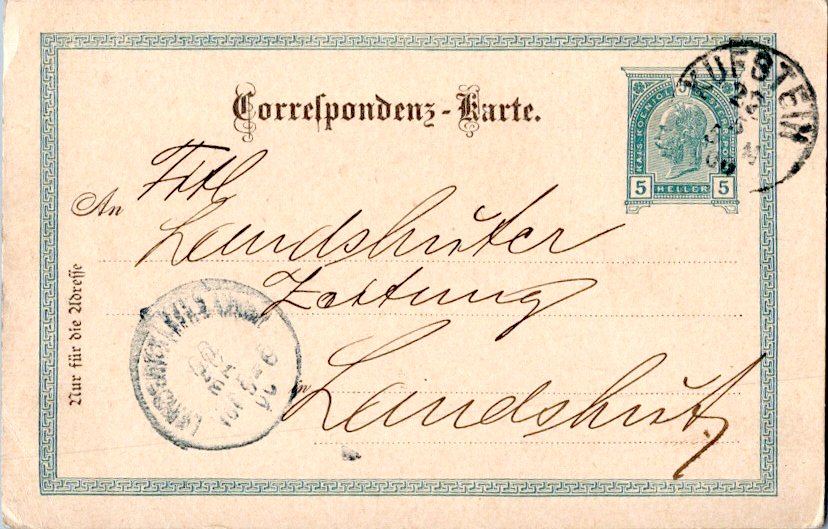 Correspondenz-Karte.
KUFSTEIN
KAIS. KOENIGL.
5 HELLER 5
An
Titl
Landshuter
Zeitung
in
Landshut
Nur für die Adresse